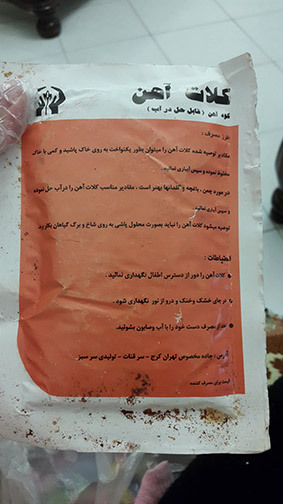 کلات آهن
کود آهن ( قابل حل در آب )
طرز مصرف :
مقادیر توصیه شده کلات آهن را میتوان بطور یکنواخت به روی خاک پاشید و کمی با خاک
مخلوط نموده و سپس آبیاری نمائید.
در مورد چمن ، باغچه و گلدانها بهتر است ، مقادیر مناسب کلات آهن را در آب حل نموده
و سپس آبیاری نمائید.
توصیه میشود کلات آهن را نباید بصورت محلول پاشی به روی شاخ و برگ گیاهان بکار برد
احتیاطات :
کلات آهن را دور از دسترس اطفال نگهداری نمائید .
در جای خشک وخنک و دور از نور نگهداری شود .
بعد از مصرف دست خود را با آب وصابون بشوئید.
آدرس : جاده مخصوص تهران کرج - سر قنات - تولیدی سر سبز
قیمت برای مصرف کننده